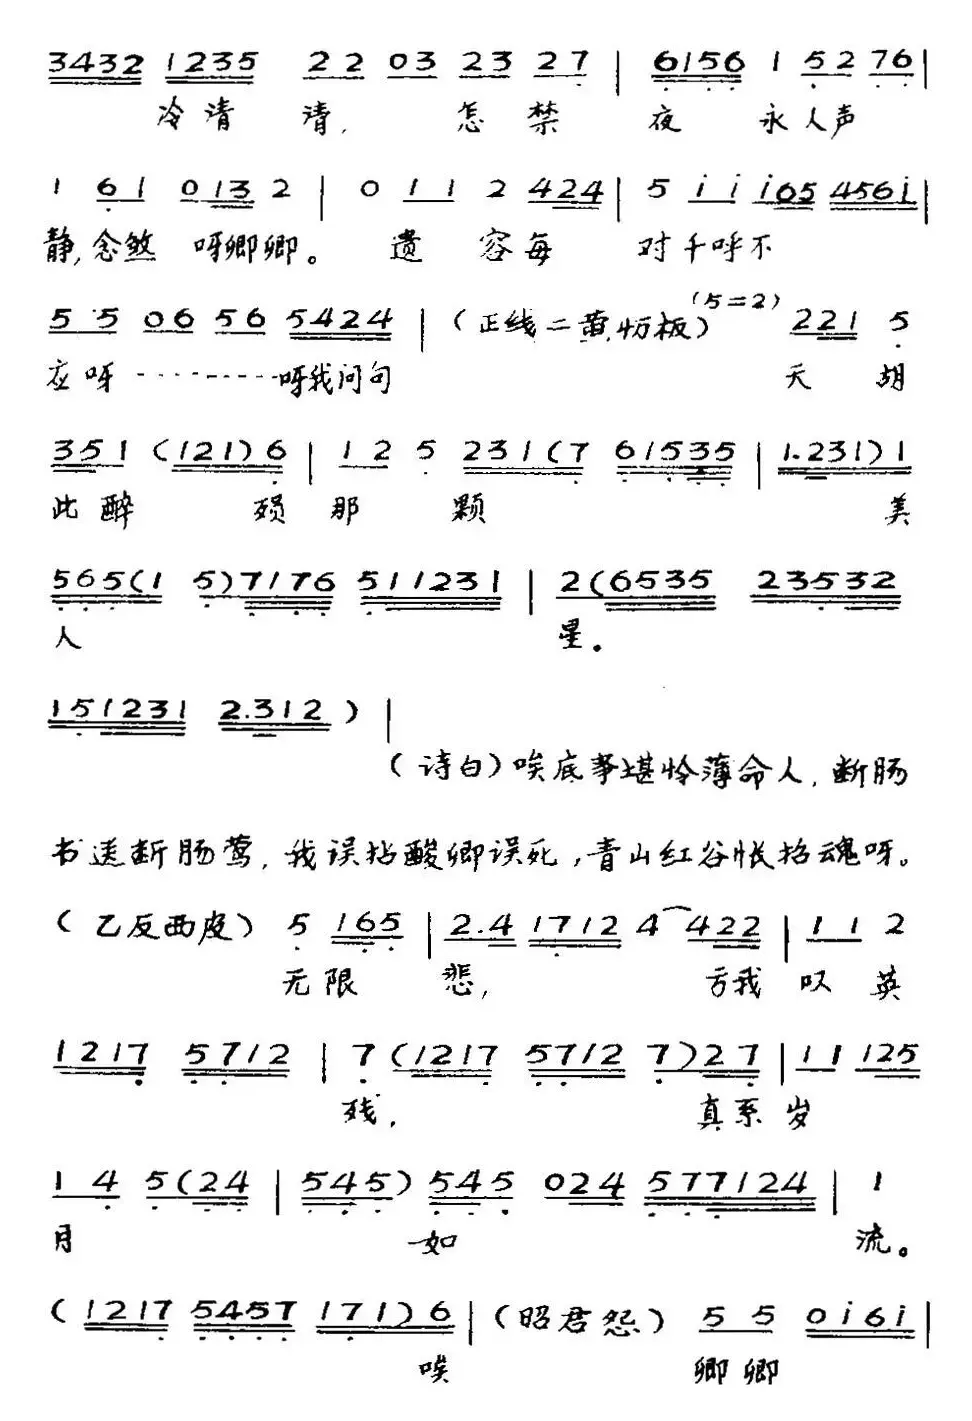 3432 1235 22 03 23 27 | 6156 1 52 76 |
冷清 清, 怎 禁 夜 永人声
1 61 013 2 | 0 11 2 424 | 5 ii i65 456i |
静,念煞 呀卿卿。 遗 容每 对千呼不
55 06 56 5424 | (正线二黄,慢板) (5=2) 221 5
应呀·········呀我问句 天 胡
351 (121)6 | 12 5 231(7 61535 | 1.231)1
此醉 殒 那 颗 美
565(1 5)7176 511231 | 2(6535 23532
人 星。
151231 2.312 ) |
(诗白)唉底事堪怜薄命人,断肠
书送断肠莺,我误拈酸卿误死,青山红谷怅招魂呀。
(乙反西皮) 5 165 | 2.4 1712 4 422 | 11 2
无限 悲, 我叹 英
1217 5712 | 7(1217 5712 7)27 | 11 125
残, 真系岁
14 5(24 | 545)545 024 577124 | 1
月 如 流。
(1217 5457 171)6 | (昭君怨) 55 0i6i |
唉 卿卿